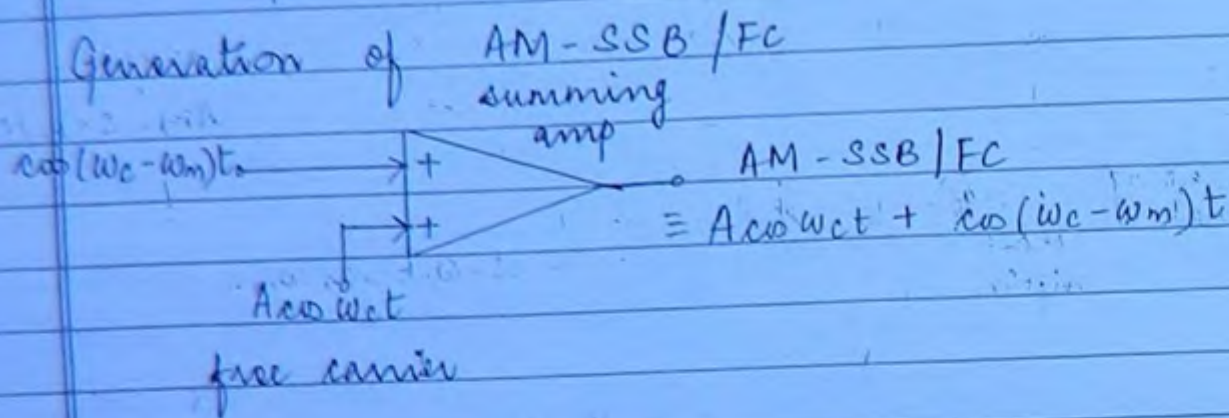 Generation of AM-SSB/FC
summing
amp
cos(ωc-ωm)t
+
AM-SSB/FC
+
≡ A cos ωct + cos(ωc-ωm)t
A cos ωct
free carrier